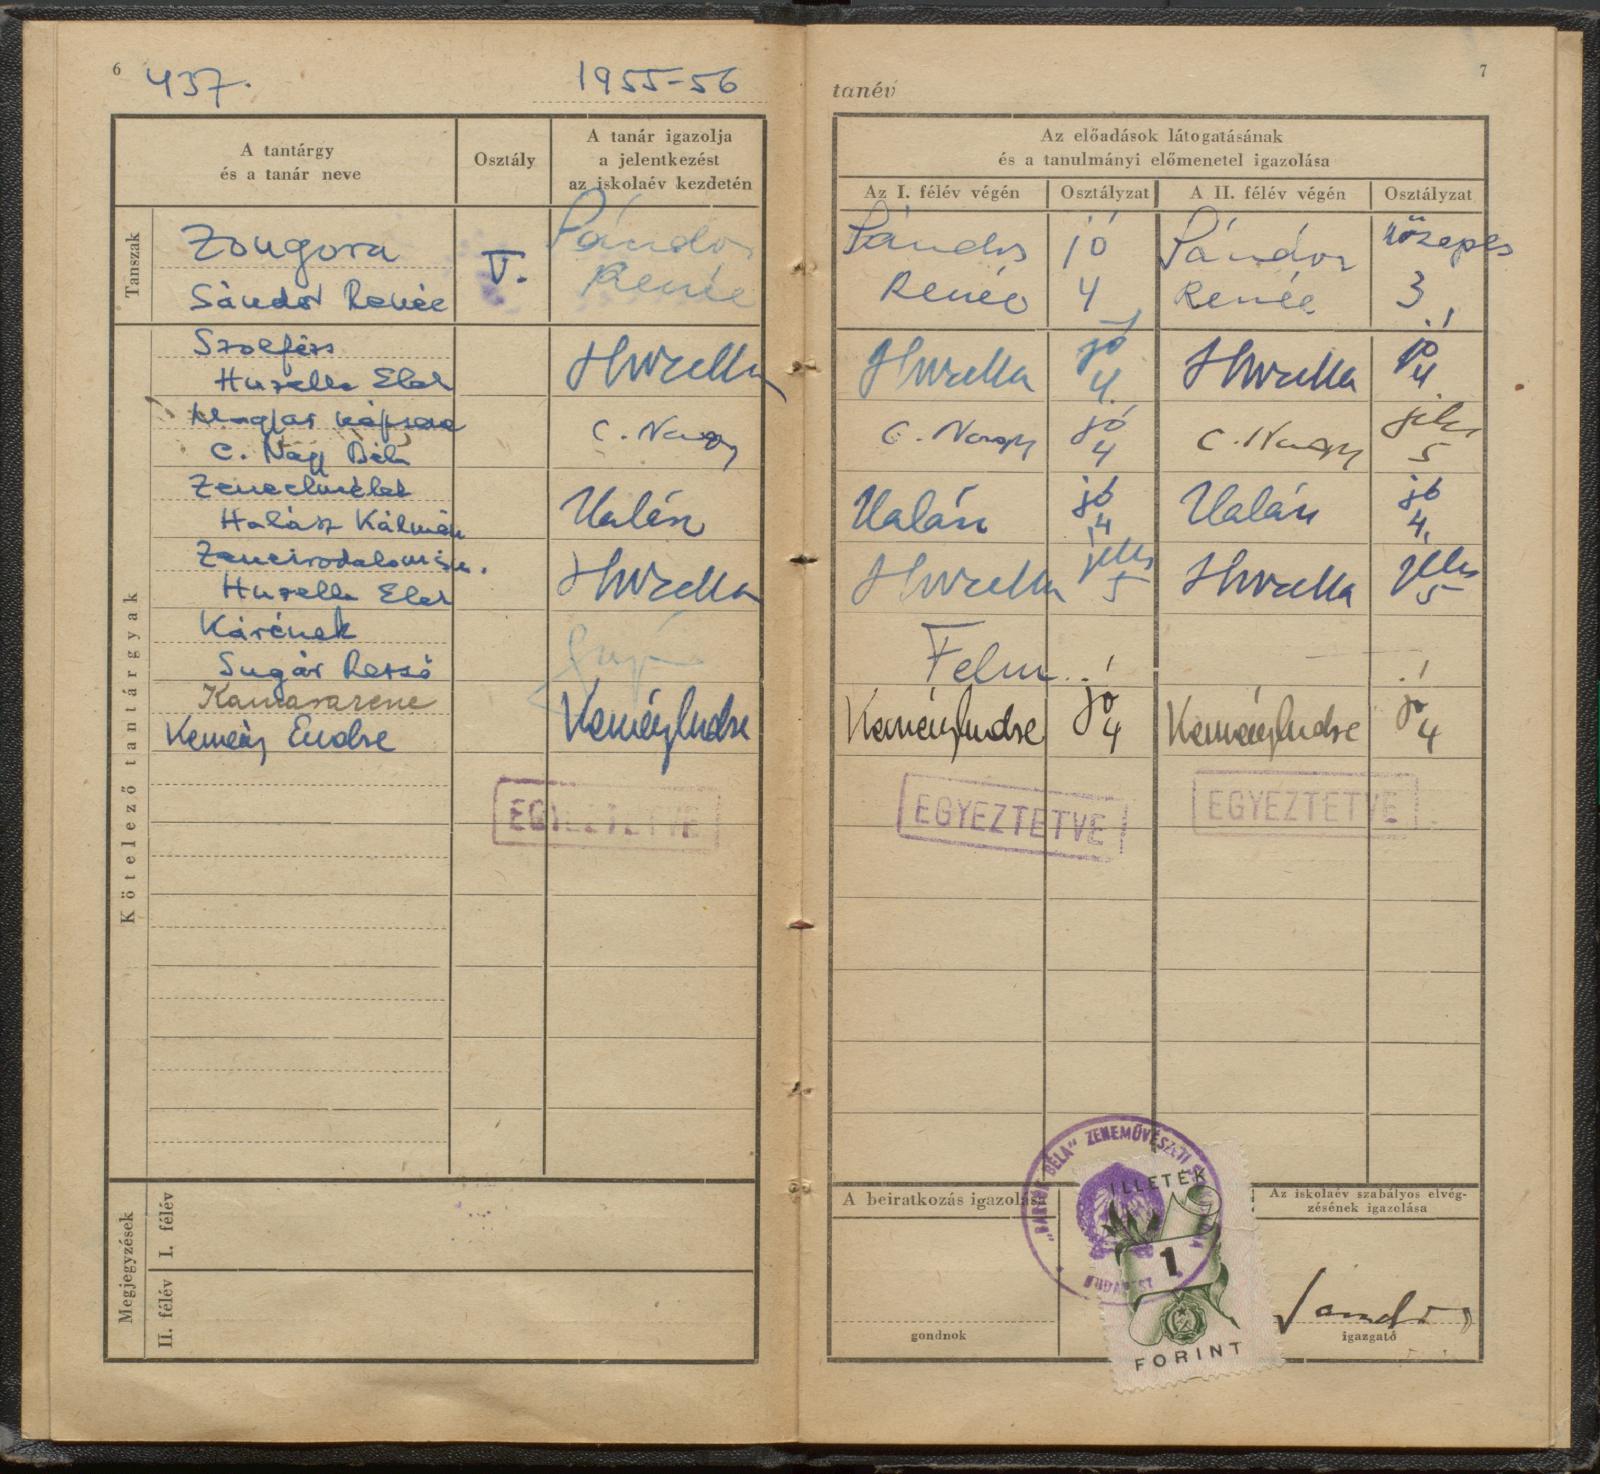 6
437.
1955-56
A tantárgy
és a tanár neve
Osztály
A tanár igazolja
a jelentkezést
az iskolaév kezdetén
Tanszak
Zongora
Sándor Renée
V.
Sándor
Renée
Kötelező tantárgyak
Szolfézs
Huzella Elek
Huzella
C. Nagy Béla
C. Nagy
Zeneelmélet
Halász Kálmán
Halász
Huzella Elek
Huzella
Karének
Sugár Rezső
Kamarazene
Kemény Endre
Kemény Endre
EGYEZTETVE
Megjegyzések
I. félév
II. félév
7
tanév
Az előadások látogatásának
és a tanulmányi előmenetel igazolása
Az I. félév végén
Osztályzat
A II. félév végén
Osztályzat
Sándor
Renée
jó
4
Sándor
Renée
közepes
3
Huzella
jó
4
Huzella
jó
4
C. Nagy
jó
4
C. Nagy
jeles
5
Halász
jó
4
Halász
jó
4
Huzella
jeles
5
Huzella
jeles
5
Felm.
Kemény Endre
jó
4
Kemény Endre
jó
4
EGYEZTETVE
EGYEZTETVE
A beiratkozás igazolása
gondnok
BÉLA" ZENEMŰVÉSZETI
ILLETÉK
1
FORINT
Az iskolaév szabályos elvég-
zésének igazolása
Sándor
igazgató